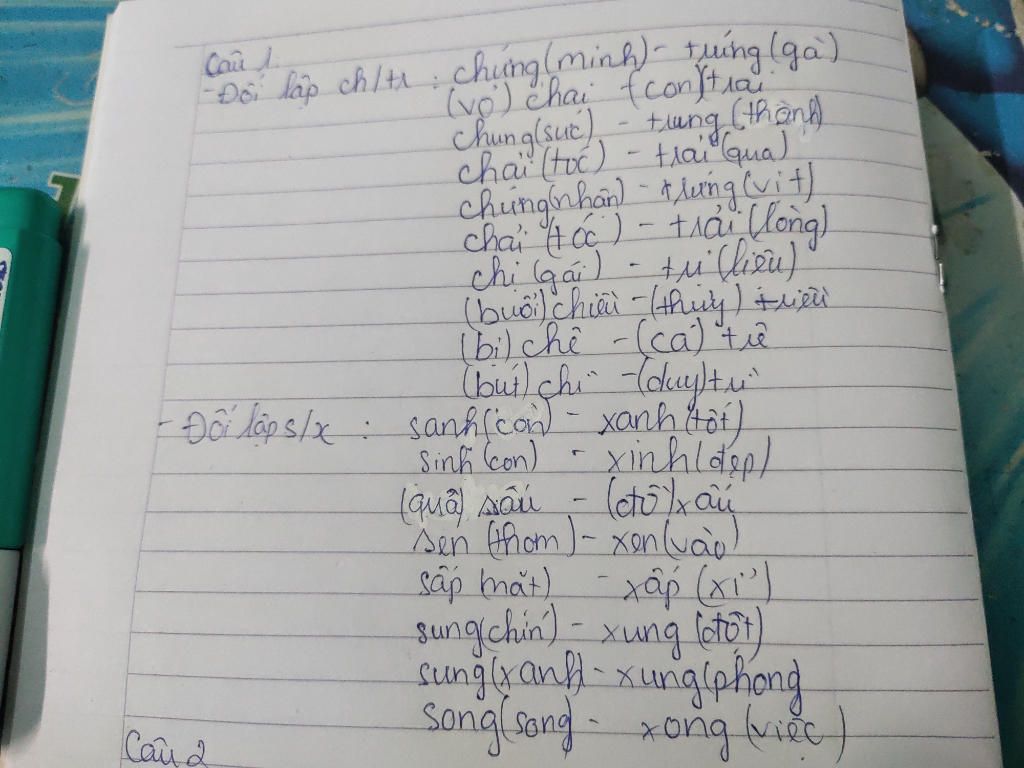 Câu 1.
- Đối lập ch/tr : chứng (minh) - trứng (gà)
(vỏ) chai - (con) trai
chung (sức) - trung (thành)
chải (tóc) - trái (quả)
chứng (nhận) - trứng (vịt)
chải (tóc) - trải (lòng)
chị (gái) - trị (liệu)
(buổi) chiều - (thủy) triều
(bị) chê - (cá) trê
(bút) chì - (duy) trì
- Đối lập s/x : sanh (con) - xanh (tốt)
sinh (con) - xinh (đẹp)
(quả) sấu - (đồ) xấu
sen (thơm) - xen (vào)
sấp (mặt) - xấp (xỉ)
sung (chín) - xung (đột)
sung (xanh) - xung (phong
song (song) - xong (việc)
Câu 2